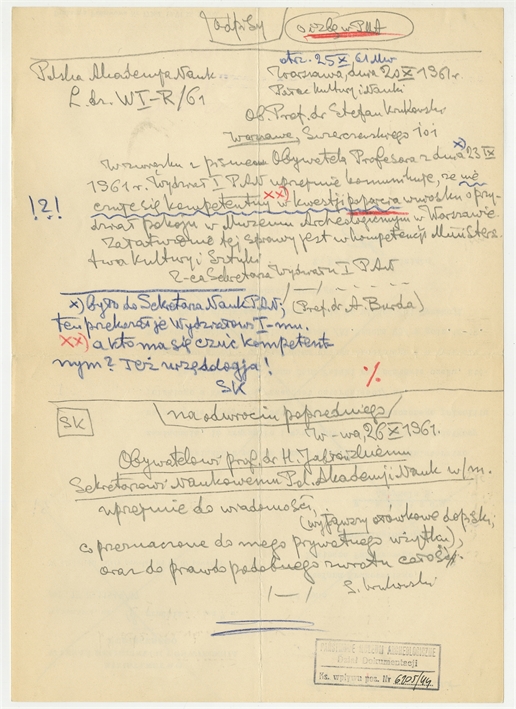 odpisy / oryg. w PMA
otrz. 25 X 61 Mw
Polska Akademja Nauk
Warszawa, dnia 20 X 1961 r.
L. dz. WI-R/61
Pałac Kultury i Nauki
Ob. Prof. dr Stefan Krukowski
Warszawa, Świerczewskiego 101
W związku z pismem Obywatela Profesora z dnia x) 23 IX
1961 r. Wydział I PAN uprzejmie komunikuje, że nie
!?! czuje się kompetentny xx) w kwestji poparcia wniosku o przy-
dział pokoju w Muzeum Archeologicznym w Warszawie.
Załatwienie tej sprawy jest w kompetencji Minister-
stwa Kultury i Sztuki
Z-ca Sekretarza Wydziału I PAN
/—/
x) było do Sekretarza Nauk. PAN; (Prof. dr A. Burda)
ten przekazał je Wydziałowi I-mu.
xx) a kto ma się czuć kompetent-
nym? Też urzędologja!
SK
%
SK
na odwrociu poprzedniego
W-wa, 26 X 1961.
Obywatelowi prof. dr H. Jabłońskiemu
Sekretarzowi Naukowemu Pol. Akademji Nauk w/m.
uprzejmie do wiadomości,
(wyjąwszy ołówkowe dopiski,
co przeznaczone do mego prywatnego użytku),
oraz do prawdopodobnego zwrotu całości.
/—/ S. Krukowski
PAŃSTWOWE MUZEUM ARCHEOLOGICZNE
Dział Dokumentacji
Ks. wpływu poz. Nr 6205/44.